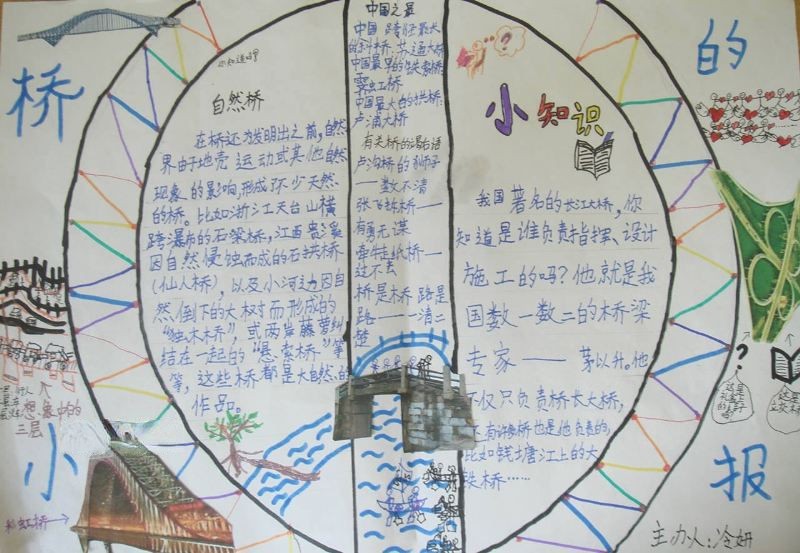 桥
的
小
报
你知道吗?
自然桥
在桥还为发明出之前,自然
界由于地壳运动或其他自然
现象的影响,形成不少天然
的桥。比如浙江天台山横
跨瀑布的石梁桥,江西贵溪
因自然侵蚀而成的石拱桥
(仙人桥),以及小河边因自
然倒下的大树而形成的
“独木桥”,或两岸藤萝纠
结在一起的“悬索桥”等
等,这些桥都是大自然的
作品。
中国之最
中国跨径最大
的斜桥:苏通大桥
中国最早的铁索桥:
霁虹桥
中国最大的拱桥:
卢浦大桥
有关桥的歇后语
卢沟桥的狮子
——数不清
张飞拆桥——
有勇无谋
牵牛走纸桥——
过不去
桥是桥路是
路——一清二
楚
小知识
我国著名的长江大桥,你
知道是谁负责指挥、设计
施工的吗?他就是我
国数一数二的桥梁
专家——茅以升。他
不仅只负责桥长大桥,
还有许多桥也是他负责的,
比如钱塘江上的大
铁桥……
想象中的
三层
彩虹桥→
主办人:冷妍